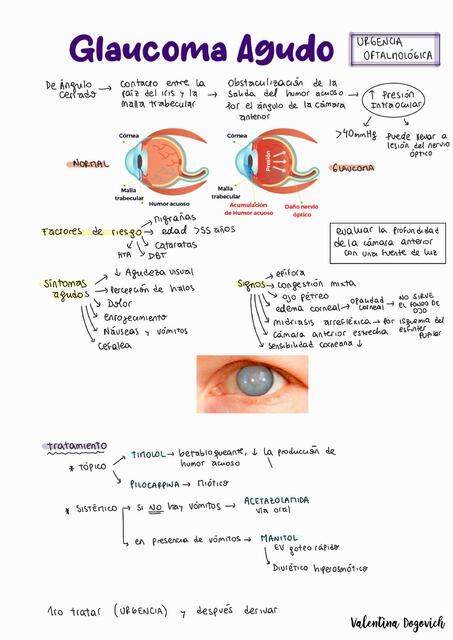 Glaucoma Agudo
URGENCIA
OFTALMOLÓGICA
De Ángulo
cerrado → contacto entre la
raíz del iris y la
malla trabecular → Obstaculización de la
salida del humor acuoso
por el ángulo de la cámara
anterior → ↑ Presión
Intraocular
>40mmHg
Puede llevar a
lesión del nervio
óptico
NORMAL
Córnea
Malla
trabecular
Humor acuoso
Córnea
Presión
Malla
trabecular
Acumulación
de Humor acuoso
Daño nervio
óptico
GLAUCOMA
Factores de riesgo
migrañas
edad >55 años
cataratas
DBT
HTA
evaluar la profundidad
de la cámara anterior
con una fuente de luz
Síntomas
agudos
↓ Agudeza visual
Percepción de halos
Dolor
Enrojecimiento
Náuseas y vómitos
Cefalea
Signos
epífora
congestión mixta
ojo pétreo
edema corneal → opacidad
corneal → NO SIRVE
EL FONDO DE
OJO
midriasis arrefléxica → por isquemia del
esfínter
pupilar
cámara anterior estrecha
sensibilidad corneana ↓
tratamiento
* TÓPICO
TIMOLOL → betabloqueante, ↓ la producción de
humor acuoso
PILOCARPINA → MIÓTICO
* SISTÉMICO
SI NO hay vómitos → ACETAZOLAMIDA
vía oral
en presencia de vómitos → MANITOL
EV goteo rápido
Diurético hiperosmótico
1ro tratar (URGENCIA) y después derivar
Valentina Dogovich